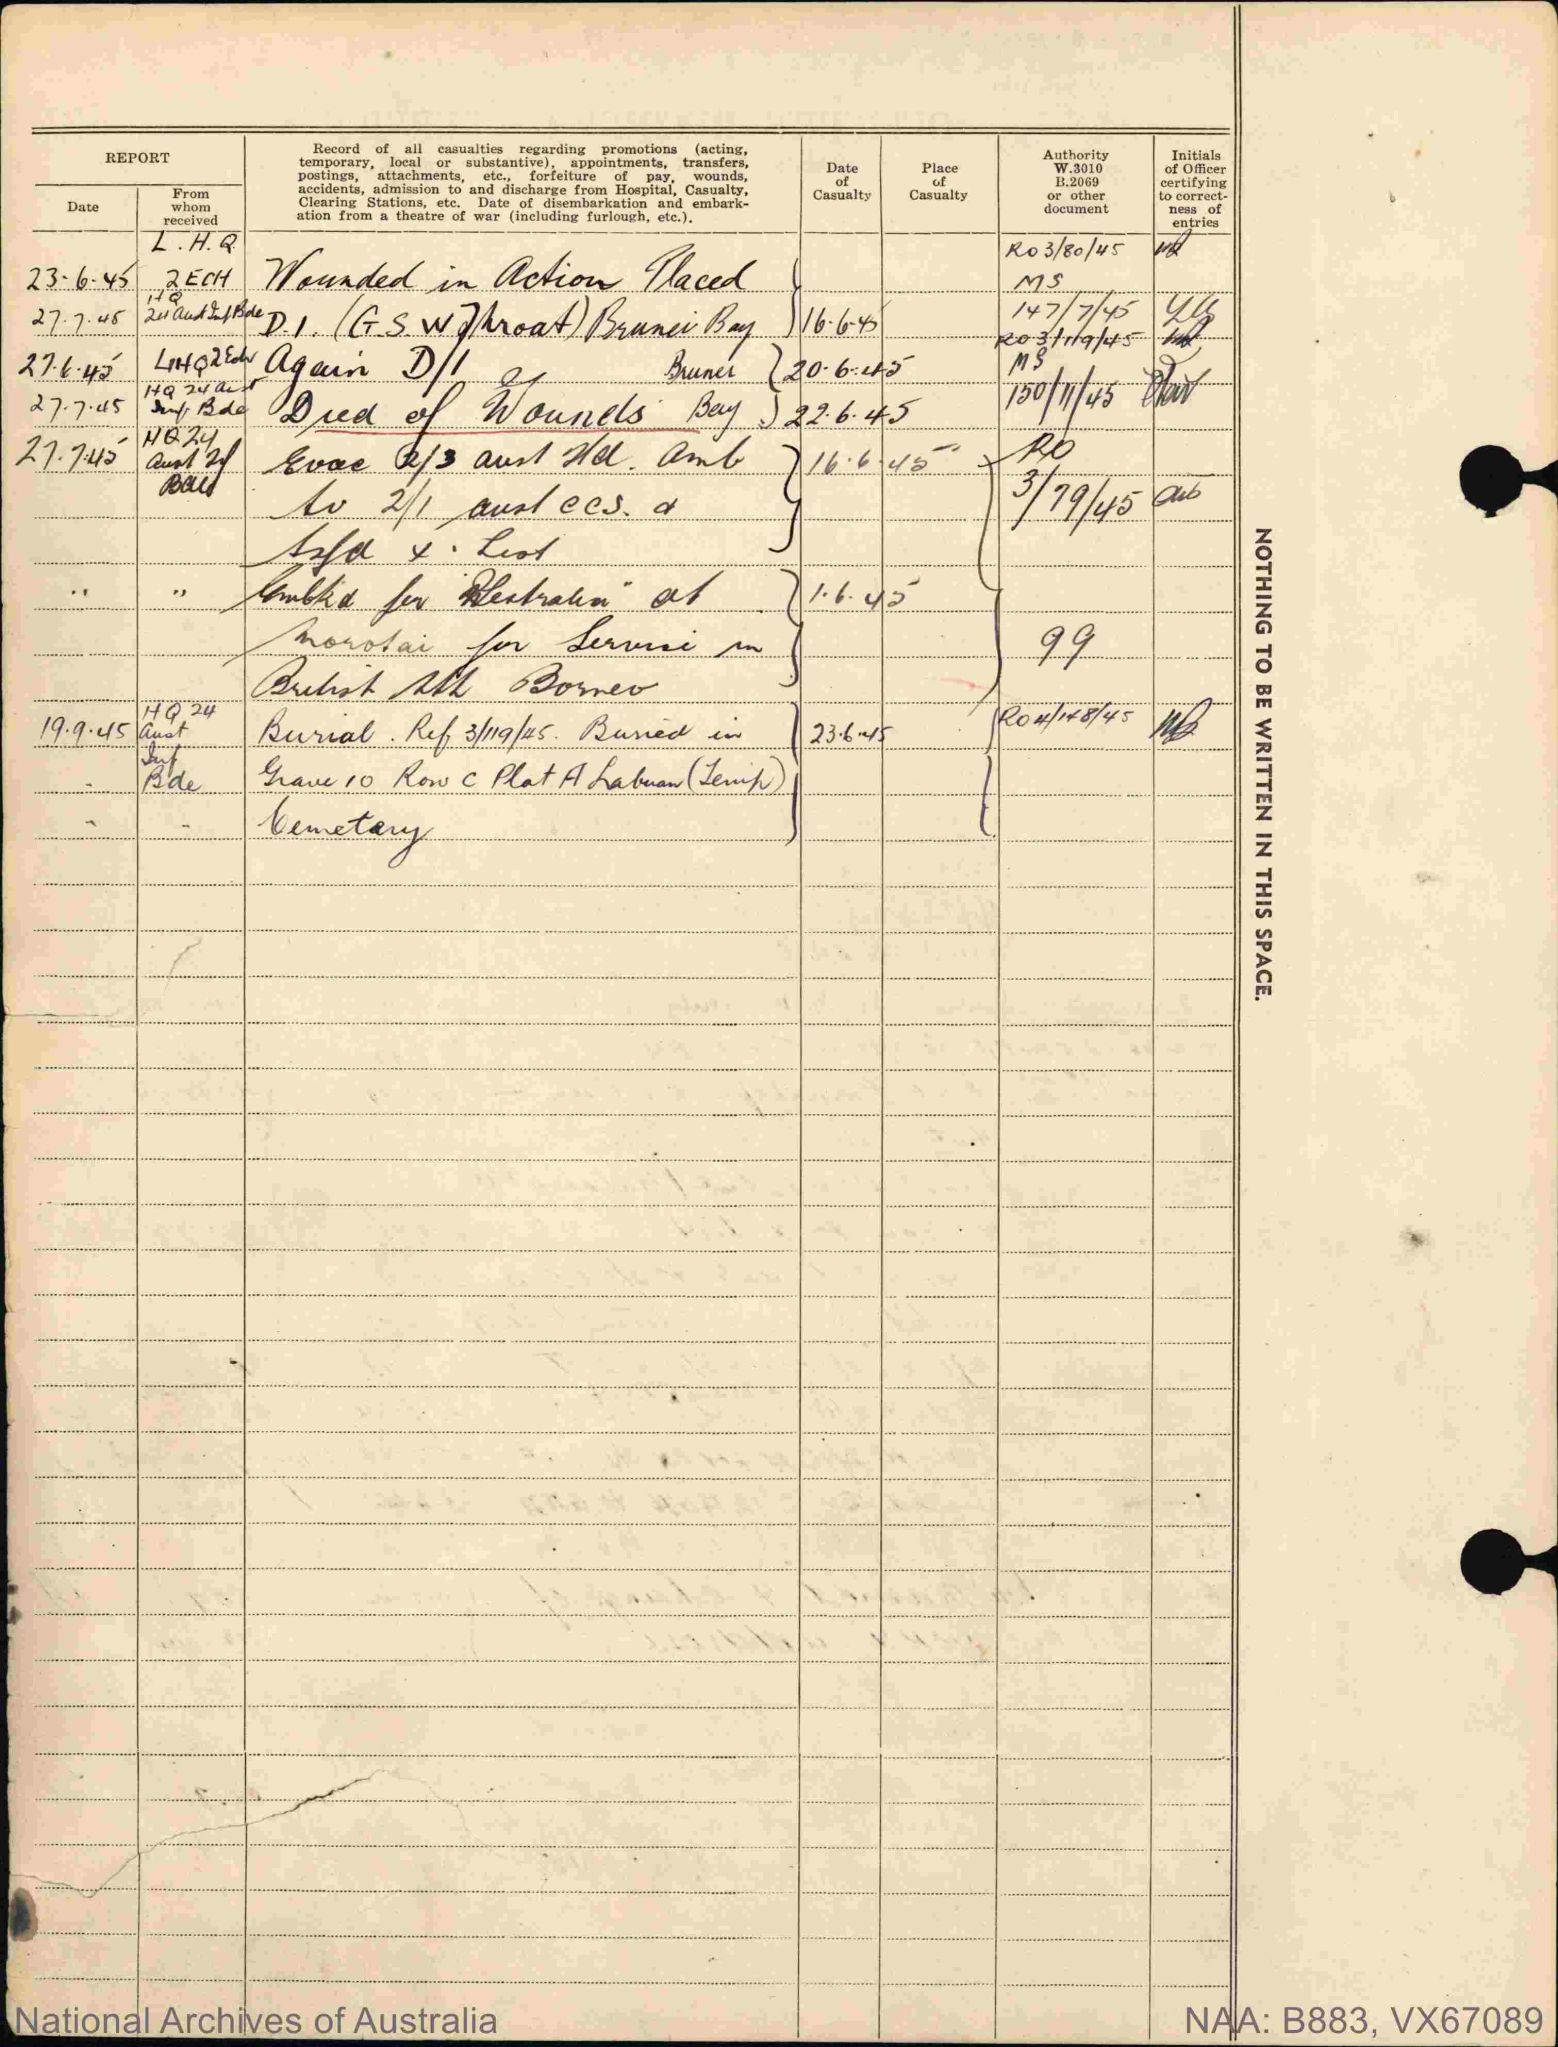 REPORT
Date
From
whom
received
Record of all casualties regarding promotions (acting,
temporary, local or substantive), appointments, transfers,
postings, attachments, etc., forfeiture of pay, wounds,
accidents, admission to and discharge from Hospital, Casualty,
Clearing Stations, etc. Date of disembarkation and embark-
ation from a theatre of war (including furlough, etc.).
Date
of
Casualty
Place
of
Casualty
Authority
W.3010
B.2069
or other
document
Initials
of Officer
certifying
to correct-
ness of
entries
L.H.Q. RO 3/80/45
23-6-45 2 ECH Wounded in Action Placed MS
27.7.45 HQ 24 Aust Inf Bde D.I. (G.S.W Throat) Brunei Bay 16-6-45 147/7/45
RO 3/119/45
27.6.45 LHQ 2 Ech Again D/I Brunei 20.6.45 MS
27.7.45 HQ 24 Aust Inf Bde Died of Wounds Bay 22.6.45 150/11/45
27.7.45 HQ 24 Evac 2/3 Aust Fld. Amb 16.6.45 RO
Aust Inf
Bde to 2/1 Aust CCS. & 3/79/45
tsfd X. List
" " Embkd for "Westralia" at 1.6.45
Morotai for Service in 99
British Nth Borneo
19.9.45 HQ 24 Aust Burial. Ref 3/119/45. Buried in 23.6.45 RO 4/148/45
Inf
Bde Grave 10 Row C Plot A Labuan (Temp)
" " Cemetary
NOTHING TO BE WRITTEN IN THIS SPACE.
National Archives of Australia
NAA: B883, VX67089